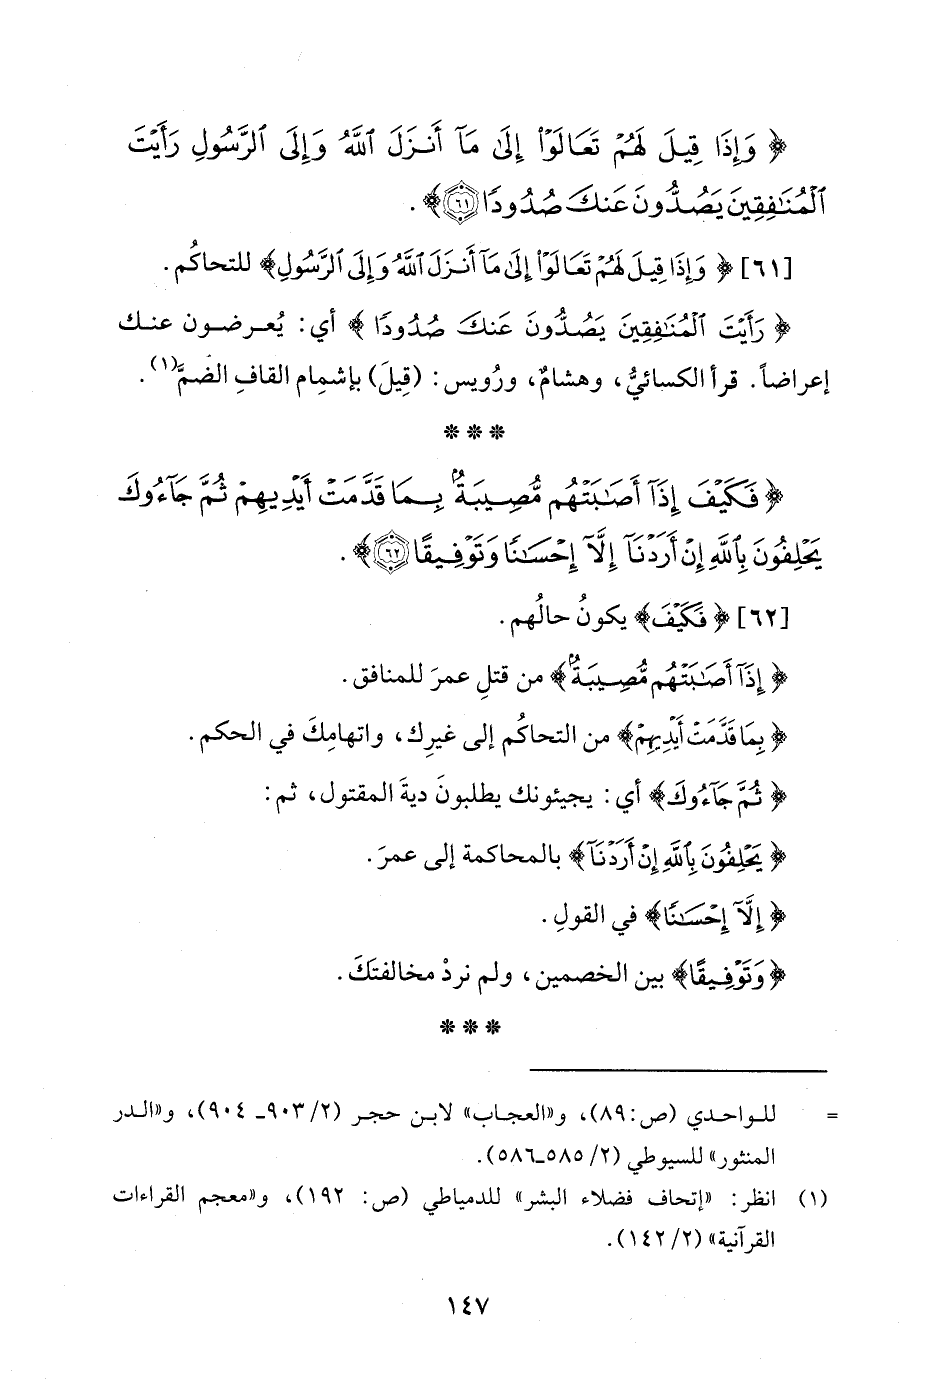 ﴿ وَإِذَا قِيلَ لَهُمْ تَعَالَوْا۟ إِلَىٰ مَآ أَنزَلَ ٱللَّهُ وَإِلَى ٱلرَّسُولِ رَأَيْتَ
ٱلْمُنَـٰفِقِينَ يَصُدُّونَ عَنكَ صُدُودًا ﴿٦١﴾ ﴾ .
[٦١] ﴿ وَإِذَا قِيلَ لَهُمْ تَعَالَوْا۟ إِلَىٰ مَآ أَنزَلَ ٱللَّهُ وَإِلَى ٱلرَّسُولِ﴾ للتحاكُم .
﴿ رَأَيْتَ ٱلْمُنَـٰفِقِينَ يَصُدُّونَ عَنكَ صُدُودًا ﴾ أي: يُعرضون عنك
إعراضاً. قرأ الكسائيُّ، وهشامٌ، ورُويس: (قِيلَ) بإشمام القافِ الضمَّ(١).
***
﴿ فَكَيْفَ إِذَآ أَصَـٰبَتْهُم مُّصِيبَةٌۢ بِمَا قَدَّمَتْ أَيْدِيهِمْ ثُمَّ جَآءُوكَ
يَحْلِفُونَ بِٱللَّهِ إِنْ أَرَدْنَآ إِلَّآ إِحْسَـٰنًا وَتَوْفِيقًا ﴿٦٢﴾ ﴾ .
[٦٢] ﴿ فَكَيْفَ﴾ يكونُ حالُهم .
﴿ إِذَآ أَصَـٰبَتْهُم مُّصِيبَةٌۢ﴾ من قتلِ عمرَ للمنافق .
﴿ بِمَا قَدَّمَتْ أَيْدِيهِمْ﴾ من التحاكُم إلى غيرِك، واتهامِكَ في الحكم .
﴿ ثُمَّ جَآءُوكَ﴾ أي: يجيئونك يطلبونَ ديةَ المقتول، ثم:
﴿ يَحْلِفُونَ بِٱللَّهِ إِنْ أَرَدْنَآ﴾ بالمحاكمة إلى عمرَ .
﴿ إِلَّآ إِحْسَـٰنًا﴾ في القولِ .
﴿ وَتَوْفِيقًا﴾ بين الخصمين، ولم نردْ مخالفتَكَ .
***
= للواحدي (ص: ٨٩)، و«العجاب» لابن حجر (٢/ ٩٠٣ـ ٩٠٤)، و«الدر
المنثور» للسيوطي (٢/ ٥٨٥ـ٥٨٦).
(١) انظر: «إتحاف فضلاء البشر» للدمياطي (ص: ١٩٢)، و«معجم القراءات
القرآنية» (٢/ ١٤٢).
١٤٧